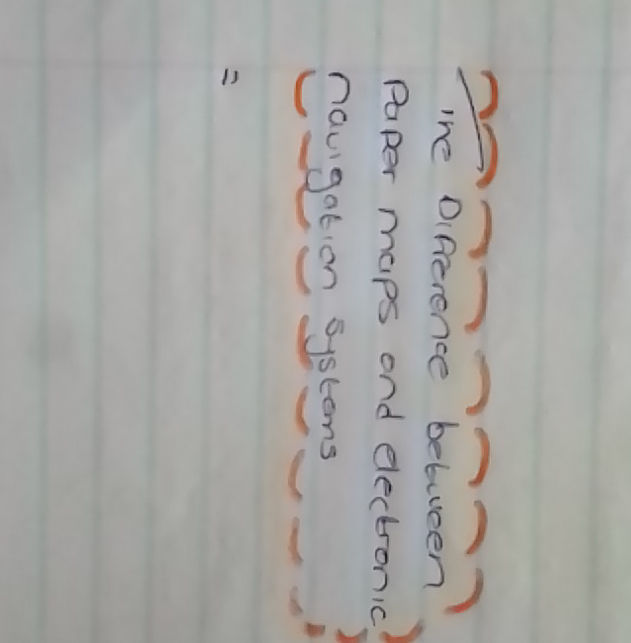 The Difference between
Paper maps and electronic
navigation systems
=